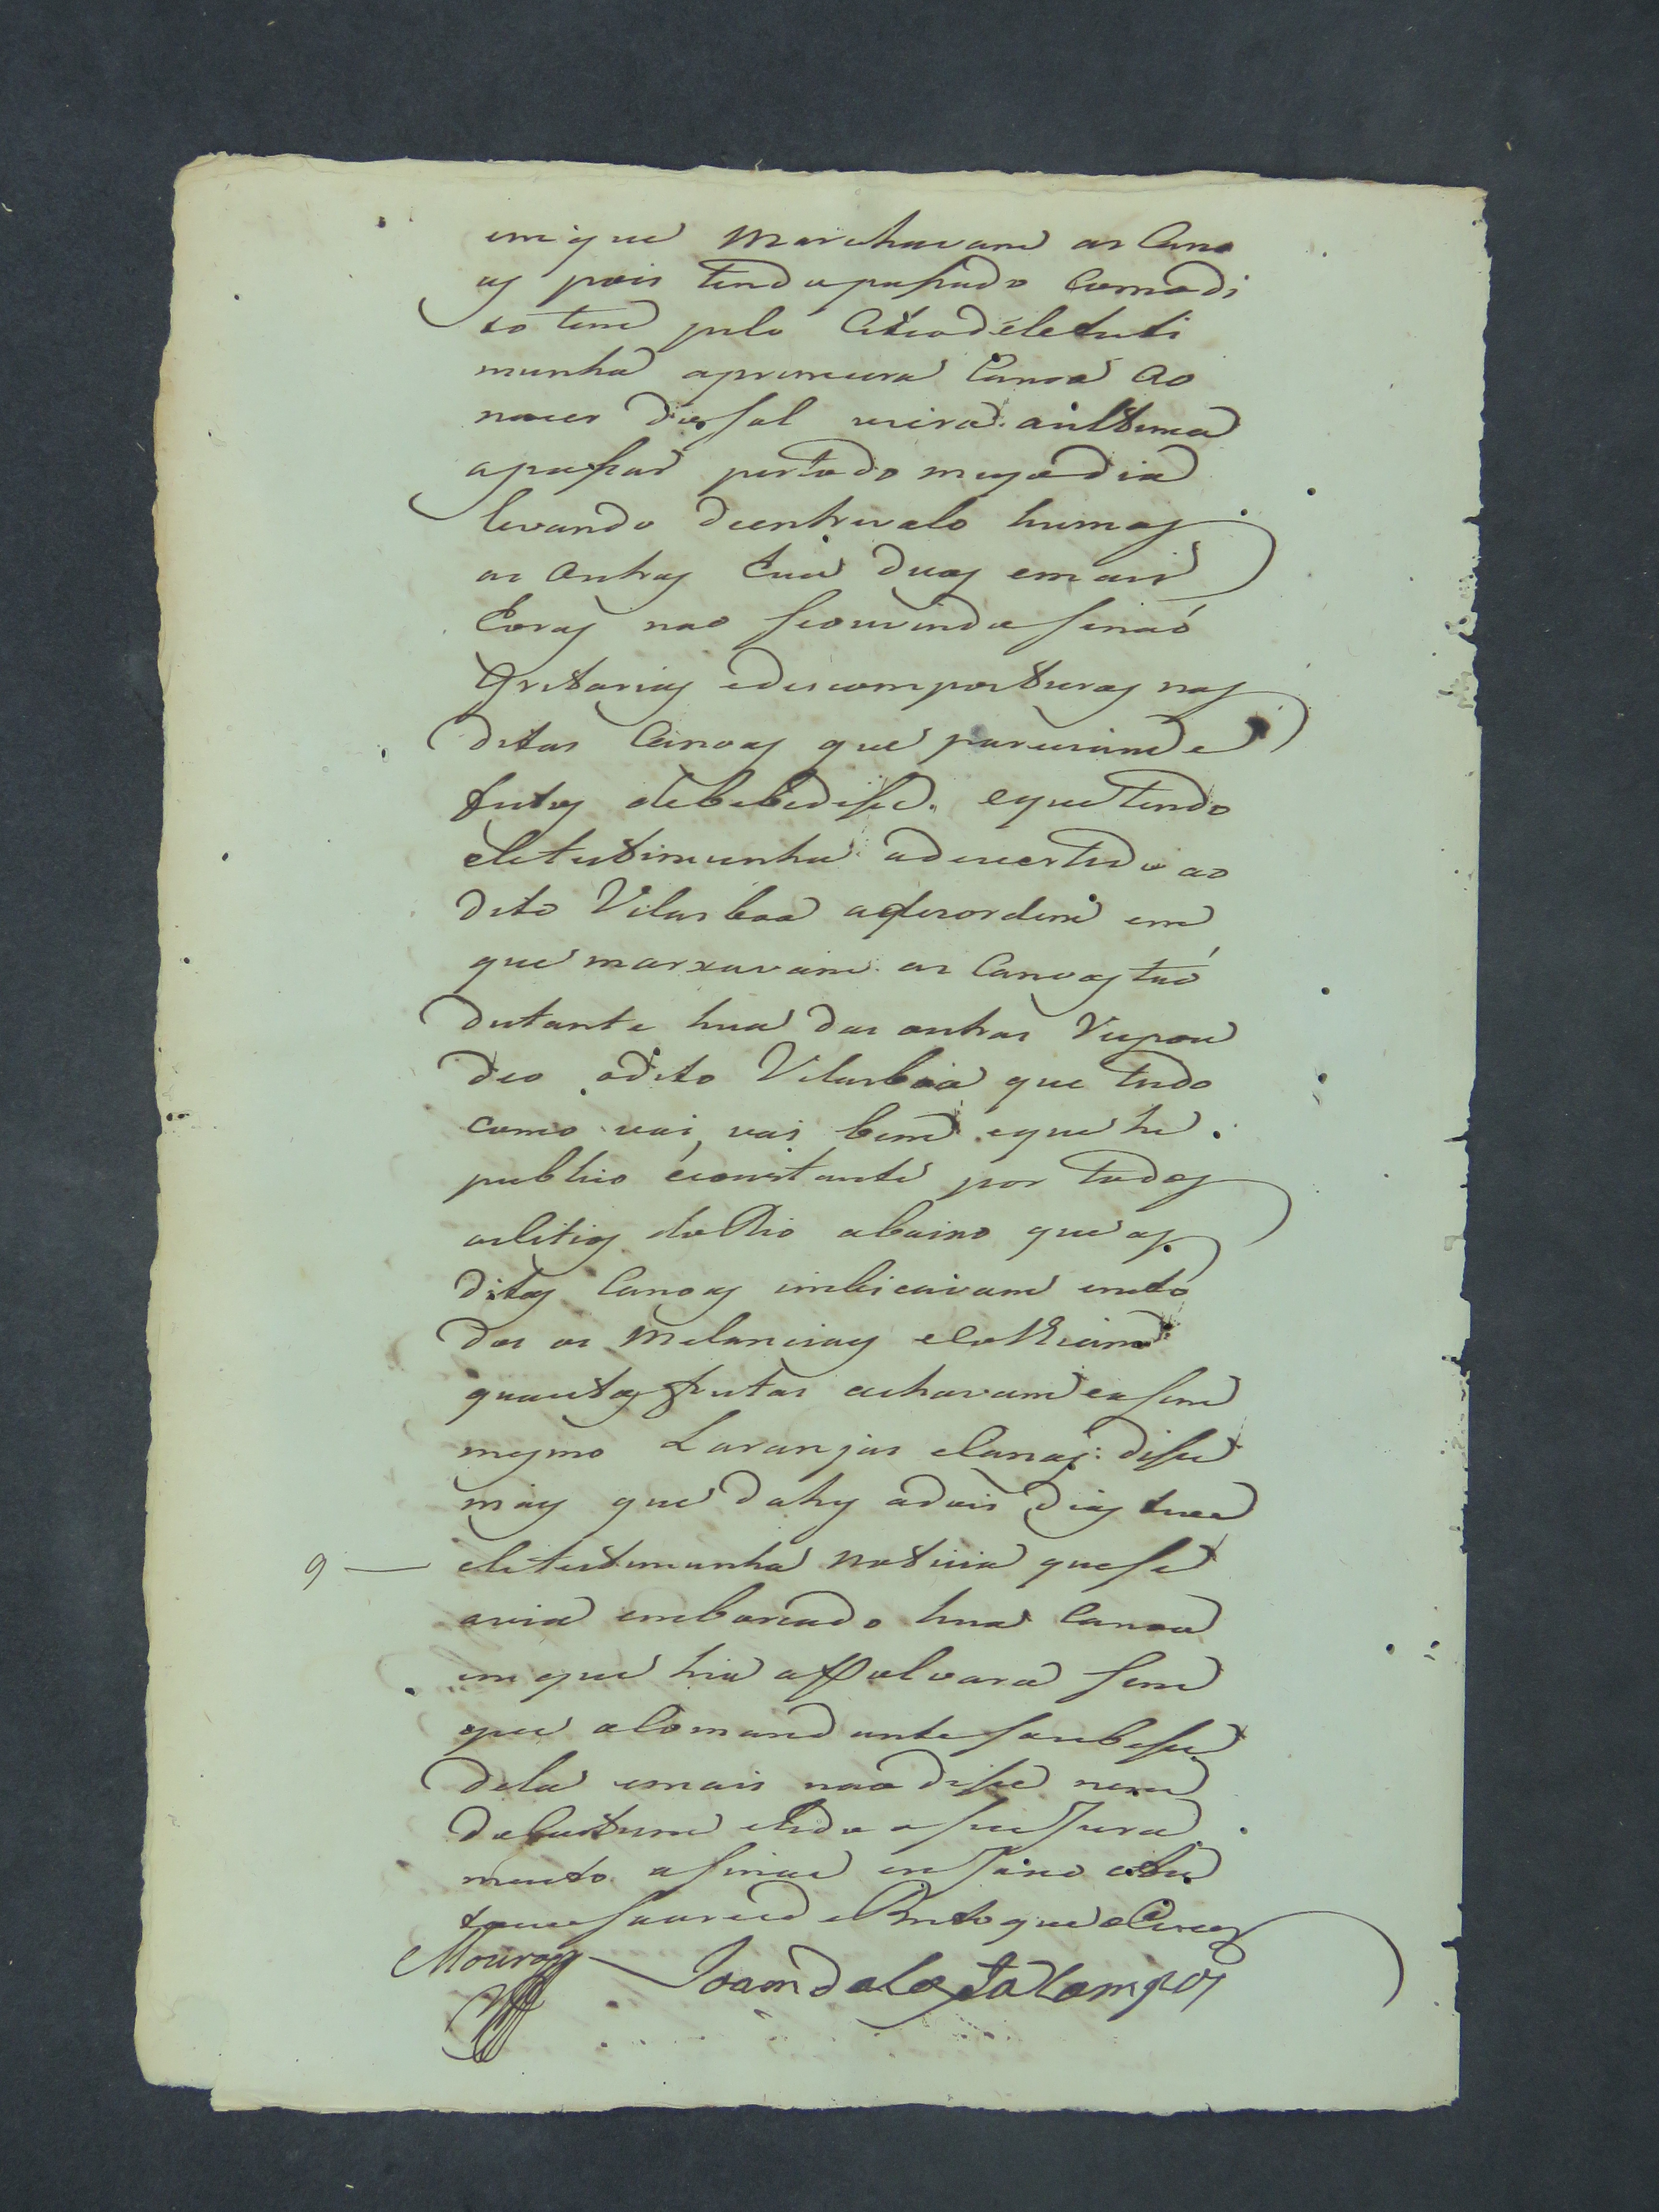 em que Marchavam as Cano
as pois tendo passado Comodi
to tem pelo Citio dele testi
munha aprimeira Canoa Ao
nacer do sol viera aultima
apassar perto do meyo dia
levando deentrevalo humas
as Outras Hua duas emais
Horas nao seouvindo senaó
Gritarias edescomposturas nas
ditas Canoas que pareciam e
feitos debebedisse. eque tendo
ele testimunha advertido ao
dito Vilasboa adesordem em
que marxavam as Canoas taó
distante hua das outras Respon
deo odito Vilasboa que tudo
como vai, vai bem eque he
publico econstante por todos
os Citios do Rio abaixo que as
ditas Canoas imbicavam emto
dos os Melanciais eColhiam
quantas frutas achavam easim
mesmo Laranjas eCanas: disse
mais que dahy adois dias teve
9 — ele testimunha noticia que se
avia embarcado hua Canoa
em que hia a Polvora sem
que o Comandante soubesse
dela emais nao disse nem
do Custume elido o seu Jura
mento asinou em Sino
que o Escrevy
Mourão Joam da Costa Campos